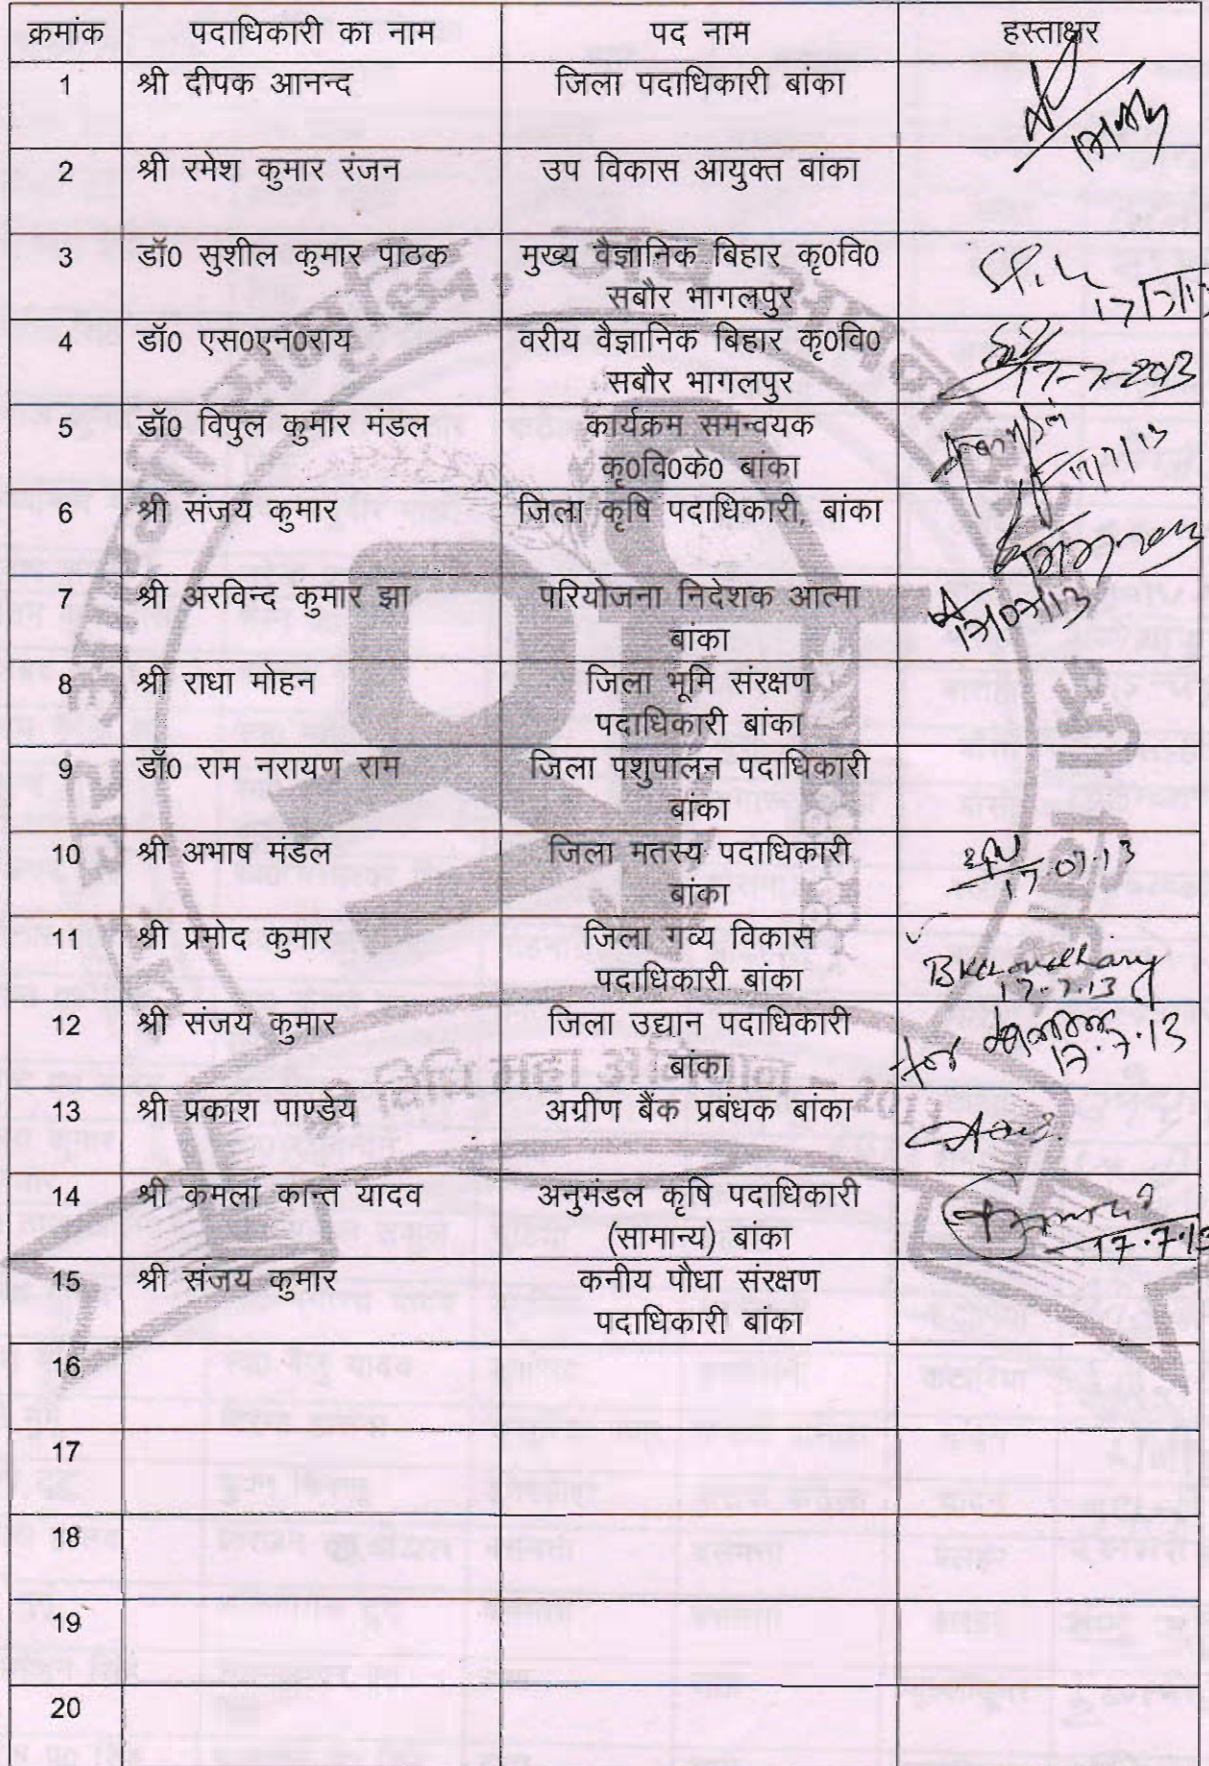 क्रमांक पदाधिकारी का नाम पद नाम हस्ताक्षर
1 श्री दीपक आनन्द जिला पदाधिकारी बांका
2 श्री रमेश कुमार रंजन उप विकास आयुक्त बांका
3 डॉ0 सुशील कुमार पाठक मुख्य वैज्ञानिक बिहार कृ0वि0
सबौर भागलपुर
4 डॉ0 एस0एन0राय वरीय वैज्ञानिक बिहार कृ0वि0
सबौर भागलपुर 17-7-2013
5 डॉ0 विपुल कुमार मंडल कार्यक्रम समन्वयक
कृ0वि0के0 बांका 17/7/13
6 श्री संजय कुमार जिला कृषि पदाधिकारी, बांका
7 श्री अरविन्द कुमार झा परियोजना निदेशक आत्मा
बांका
8 श्री राधा मोहन जिला भूमि संरक्षण
पदाधिकारी बांका
9 डॉ0 राम नरायण राम जिला पशुपालन पदाधिकारी
बांका
10 श्री अभाष मंडल जिला मतस्य पदाधिकारी
बांका 17.07.13
11 श्री प्रमोद कुमार जिला गव्य विकास
पदाधिकारी बांका 17.7.13
12 श्री संजय कुमार जिला उद्यान पदाधिकारी
बांका 17.7.13
13 श्री प्रकाश पाण्डेय अग्रीण बैंक प्रबंधक बांका
14 श्री कमला कान्त यादव अनुमंडल कृषि पदाधिकारी
(सामान्य) बांका 17.7.13
15 श्री संजय कुमार कनीय पौधा संरक्षण
पदाधिकारी बांका
16
17
18
19
20